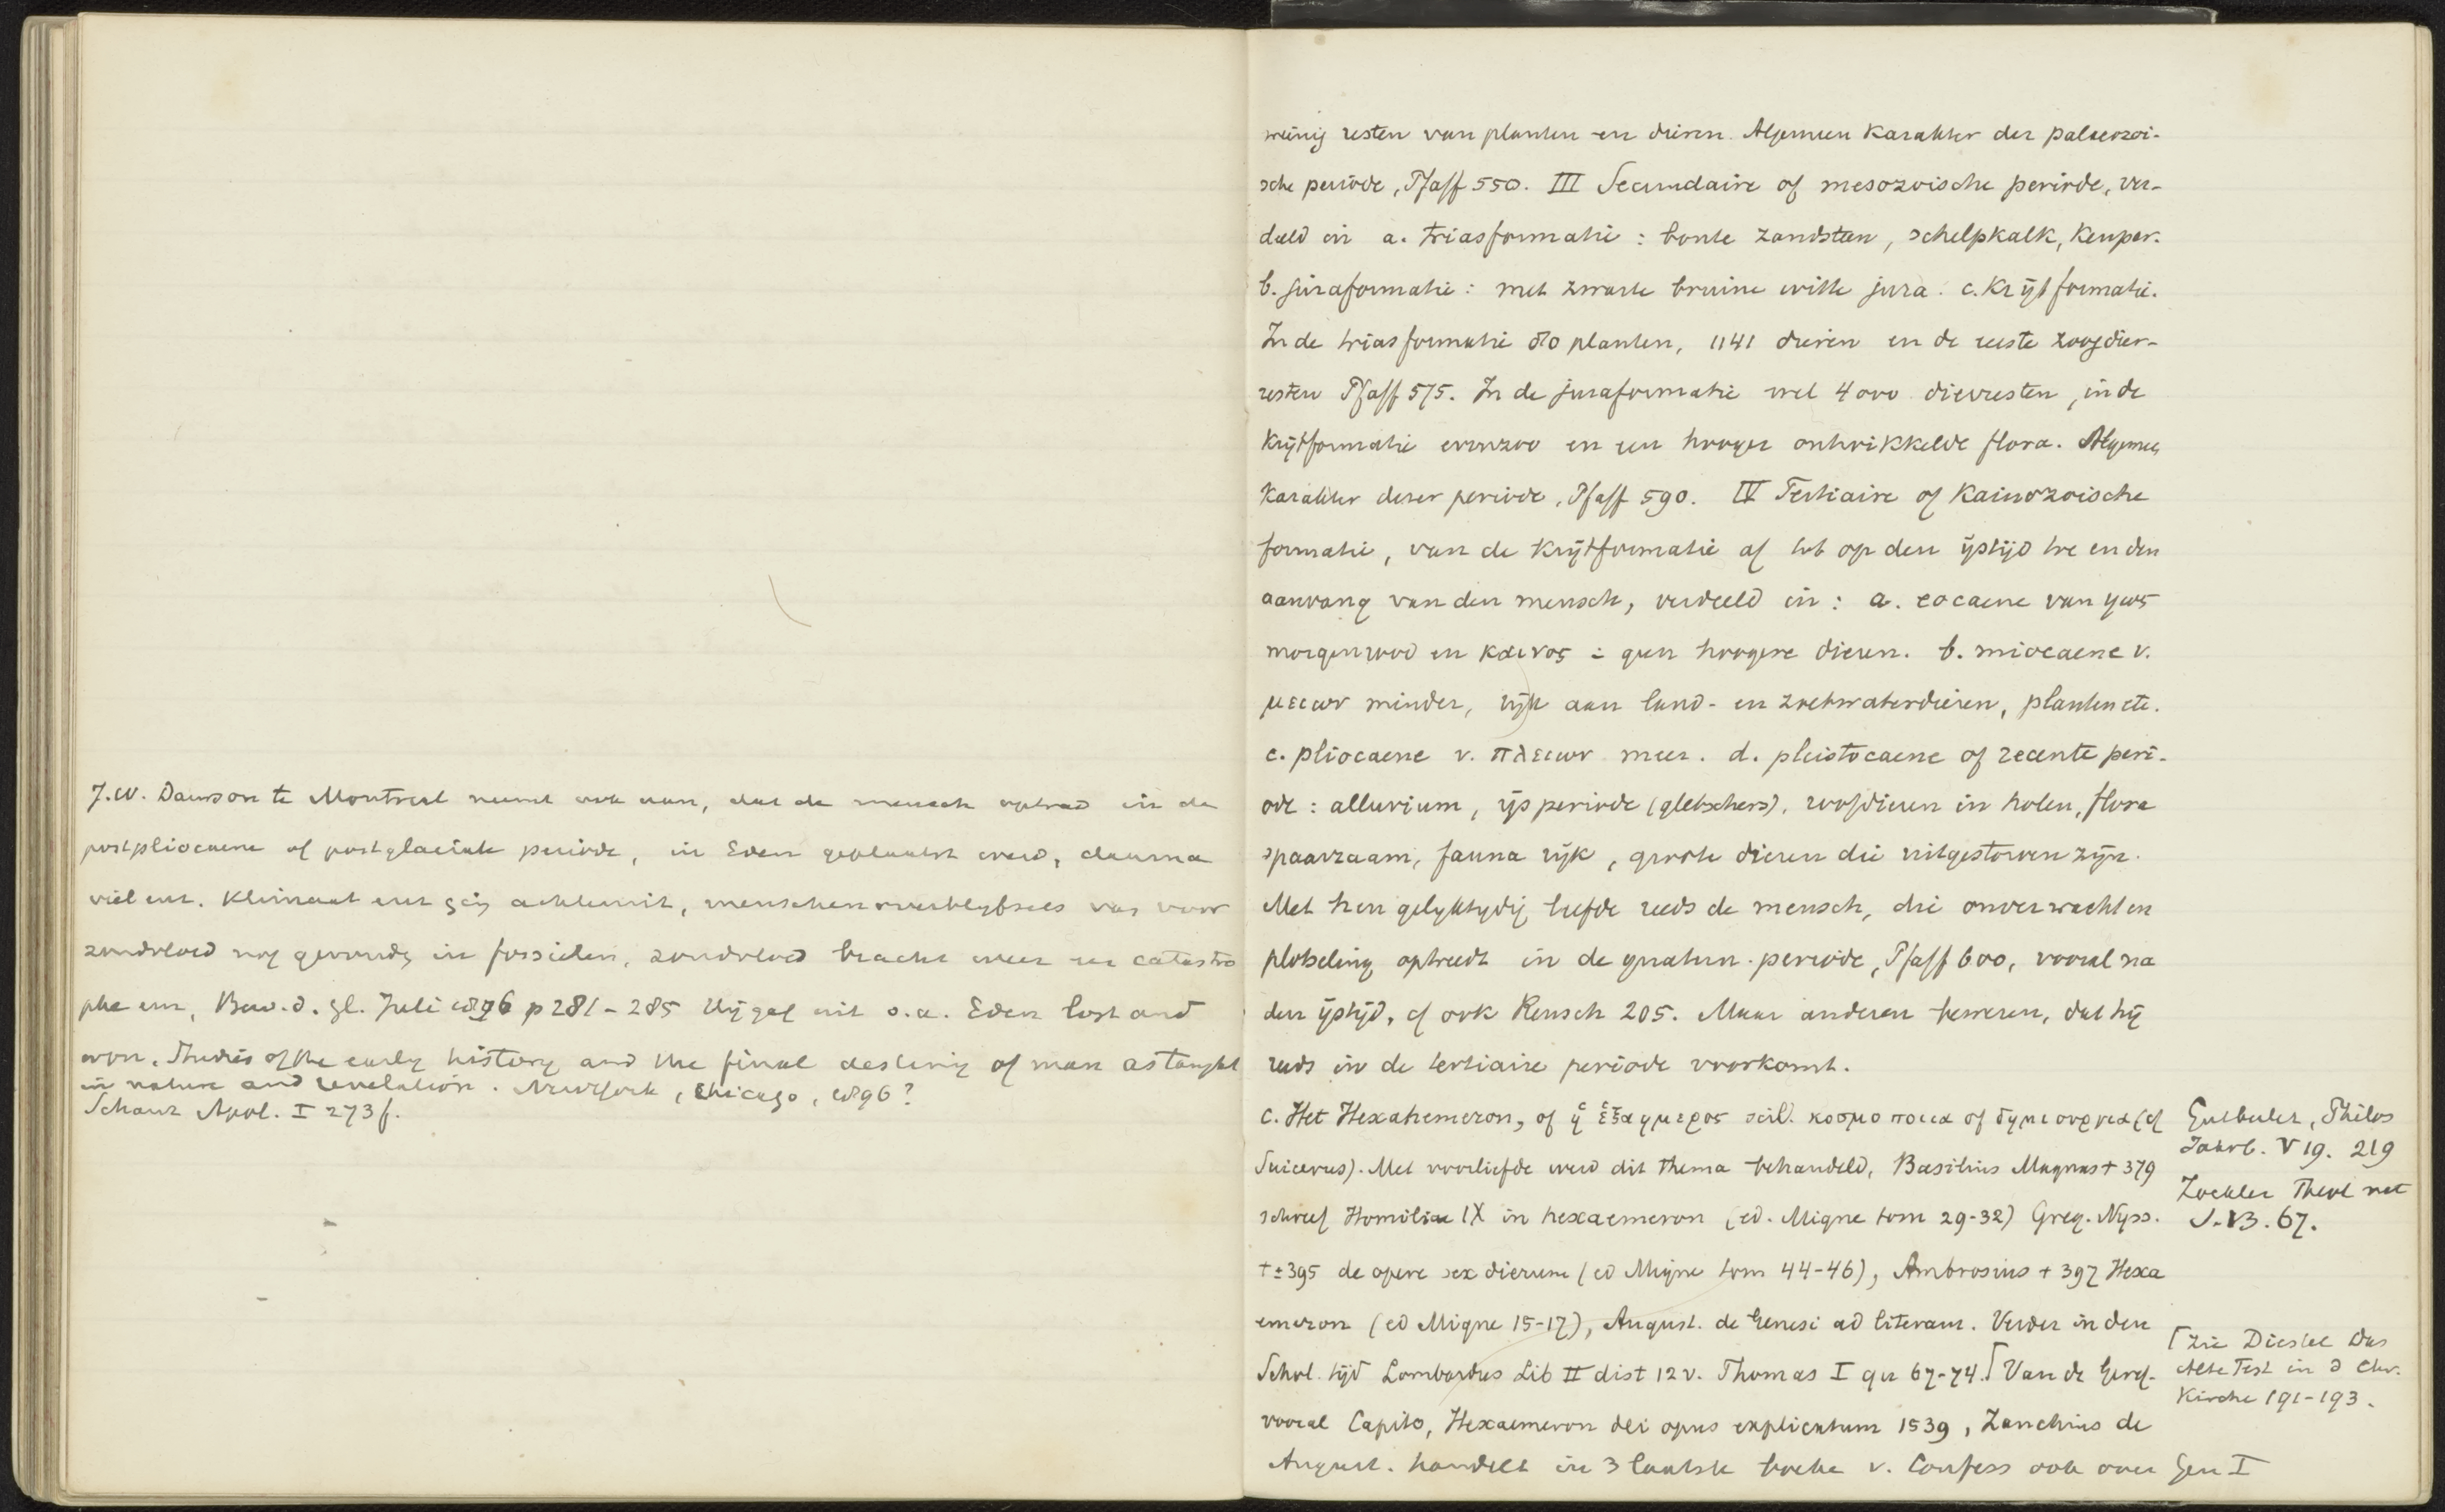 J.W. Dawson te Montreal neemt ook aan, dat de mensch optrad in de
postpliocaene of postglaciale periode, in Eden geplaatst werd, daarna
viel enz. Klimaat enz ging achteruit, menschenoverblyfsels van voor
zondvloed nog gevonden in fossielen, zondvloed bracht weer een catastro
phe enz, Bew. d. Gl. Juli 1896 p 281-285 Vijgel uit o.a. Eden lost and
won. Studies of the early history and the final destiny of man as taught
in nature and revelation. NewYork, Chicago, 1896?
Schanz Apol. I 273 f.
weinig resten van planten en dieren. Algemeen karakter der palaeozoi-
sche periode, Pfaff 550. III Secundaire of mesozoische periode, ver-
deeld in a. triasformatie: bonte zandsteen, schelpkalk, Keuper.
b. juraformatie: met zwarte bruine witte jura. c. Krijtformatie.
In de triasformatie planten, 1141 dieren en de eerste zoogdier-
resten Pfaff 575. In de juraformatie wel 4000 dierresten, in de
Krijtformatie evenzoo en een hooger ontwikkelde flora. Algemeen
karakter dezer periode, Pfaff 590. IV Tertiaire of Kainozoische
formatie, van de Krijtformatie af tot op den ijstijd toe en den
aanvang van den mensch, verdeeld in: a. eocaene van ηως
morgenrood en καινος: geen hoogere dieren. b. miocaene v.
μειων minder, rijk aan land- en zoetwaterdieren, planten etc.
c. pliocaene v. πλειων meer. d. pleistocaene of recente peri-
ode: alluvium, ijsperiode (gletschers), roofdieren in holen, flora
spaarzaam, fauna rijk, groote dieren die uitgestorven zijn.
Met hen gelyktydig leefde reeds de mensch, die onverwacht en
plotseling optreedt in de quatern. periode, Pfaff 600, vooral na
den ijstijd, cf ook Reusch 205. Maar anderen beweren, dat hij
reeds in de tertiaire periode voorkomt.
c. Het Hexahemeron, of ἡ ἑξαημερος scil. κοσμοποιια of δημιουργια (cf
Suicerus). Met voorliefde werd dit thema behandeld, Basilius Magnus † 379
schreef Homiliae IX in hexaemeron (ed. Migne tom 29-32) Greg. Nyss.
†±395 de opere sex dierum (ed Migne tom 44-46), Ambrosius † 397 Hexa
emeron (ed Migne 15-17), August. de Genesi ad literam. Verder in den
Schol. tijd Lombardus Lib II dist 12 v. Thomas I qu 67-74.⌈ Van de Geref.
vooral Capito, Hexaemeron dei opus explicatum 1539, Zanchius de
August. handelt in 3 laatste boeke v. Confess ook over Gen I
Gutberlet, Philos
Jahrb. V 19. 219
Zockler Theol nat
⌈ zie Diestel Das
Alte Test in d Chr.
Kirche 191-193.